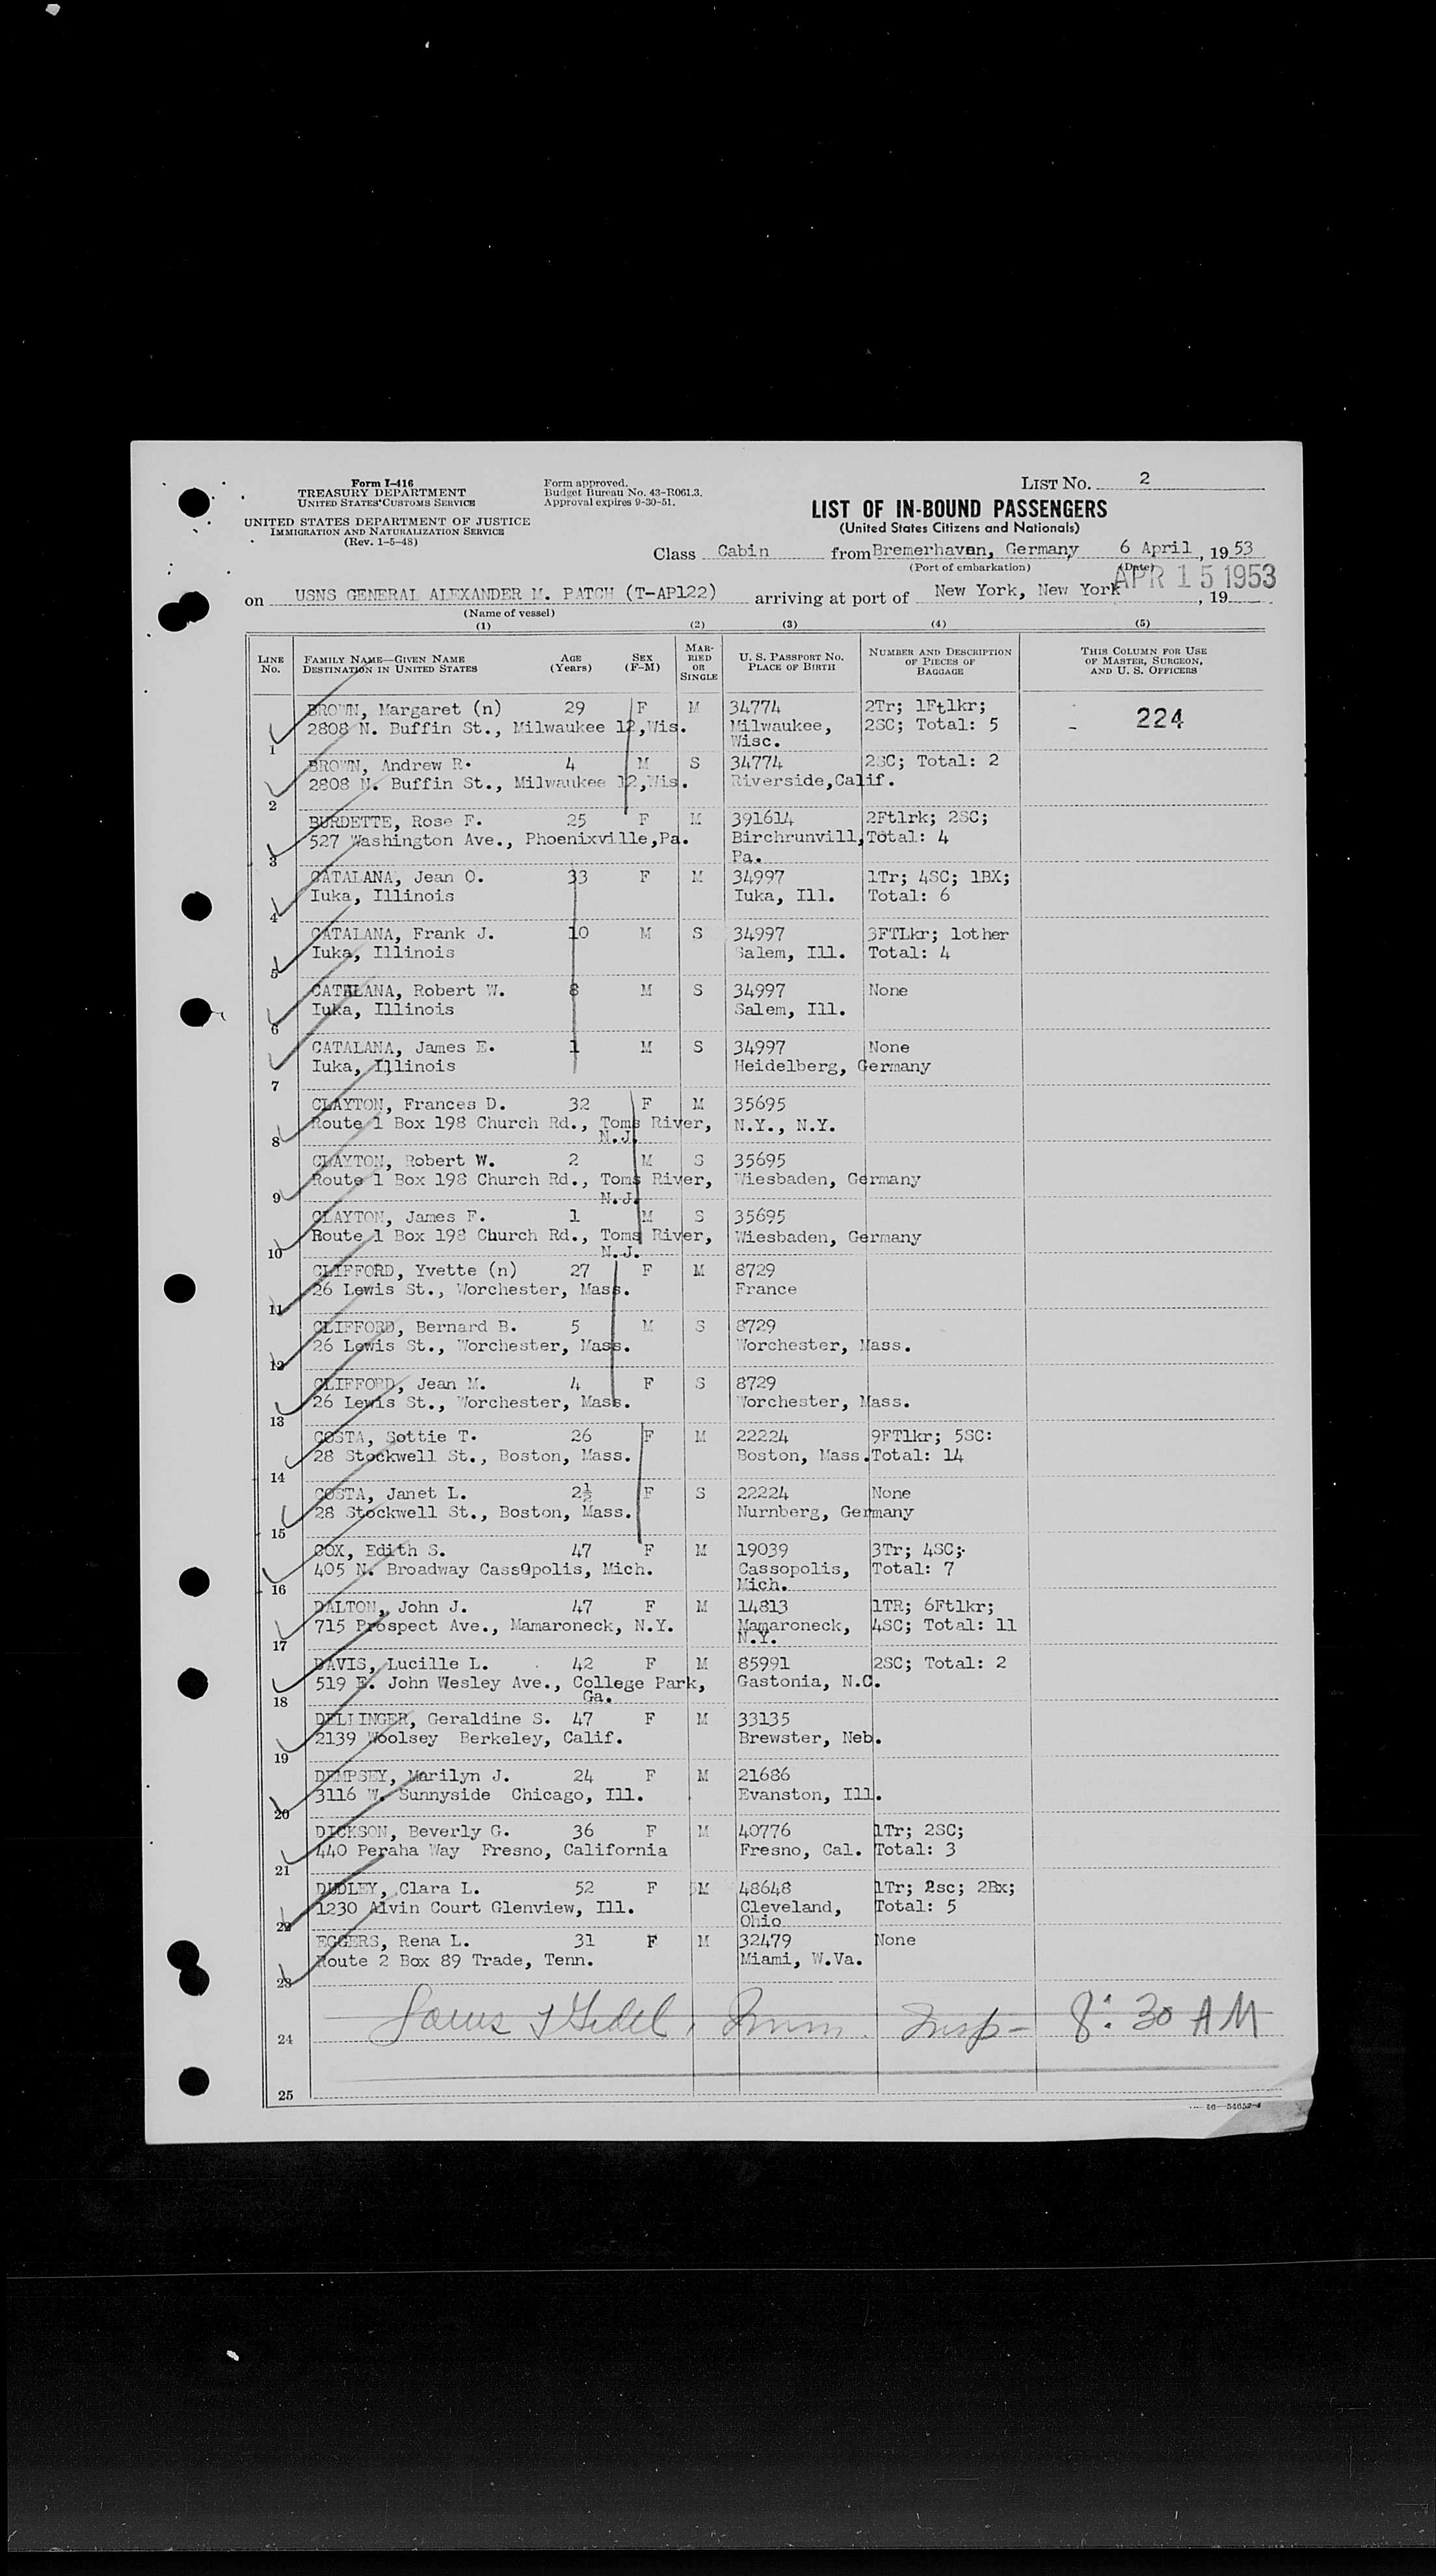 Form I-416
TREASURY DEPARTMENT
UNITED STATES CUSTOMS SERVICE
UNITED STATES DEPARTMENT OF JUSTICE
IMMIGRATION AND NATURALIZATION SERVICE
(Rev. 1-5-48)
Form approved.
Budget Bureau No. 43-R061.3.
Approval expires 9-30-51.
LIST NO. 2
LIST OF IN-BOUND PASSENGERS
(United States Citizens and Nationals)
Class Cabin from Bremerhaven, Germany 6 April, 1953
(Port of embarkation) (Date)
APR 15 1953
on USNS GENERAL ALEXANDER M. PATCH (T-AP122) arriving at port of New York, New York, 19
(Name of vessel)
(1) (2) (3) (4) (5)
LINE NO. FAMILY NAME—GIVEN NAME DESTINATION IN UNITED STATES AGE (Years) SEX (F-M) MARRIED OR SINGLE U. S. PASSPORT NO. PLACE OF BIRTH NUMBER AND DESCRIPTION OF PIECES OF BAGGAGE THIS COLUMN FOR USE OF MASTER, SURGEON, AND U. S. OFFICERS
BROWN, Margaret (n) 29 F M 34774 2Tr; 1Ftlkr; 224
2808 N. Buffin St., Milwaukee 12,Wis. Milwaukee, 2SC; Total: 5
1 Wisc.
BROWN, Andrew R. 4 M S 34774 2SC; Total: 2
2808 N. Buffin St., Milwaukee 12,Wis. Riverside,Calif.
2
BURDETTE, Rose F. 25 F M 391614 2Ftlrk; 2SC;
527 Washington Ave., Phoenixville,Pa. Birchrunvill, Total: 4
3 Pa.
CATALANA, Jean O. 33 F M 34997 1Tr; 4SC; 1BX;
Iuka, Illinois Iuka, Ill. Total: 6
4
CATALANA, Frank J. 10 M S 34997 3FTLkr; 1other
Iuka, Illinois Salem, Ill. Total: 4
5
CATALANA, Robert W. 8 M S 34997 None
Iuka, Illinois Salem, Ill.
6
CATALANA, James E. 1 M S 34997 None
Iuka, Illinois Heidelberg, Germany
7
CLAYTON, Frances D. 32 F M 35695
Route 1 Box 198 Church Rd., Toms River, N.Y., N.Y.
8 N.J.
CLAYTON, Robert W. 2 M S 35695
Route 1 Box 198 Church Rd., Toms River, Wiesbaden, Germany
9 N.J.
CLAYTON, James F. 1 M S 35695
Route 1 Box 198 Church Rd., Toms River, Wiesbaden, Germany
10 N.J.
CLIFFORD, Yvette (n) 27 F M 8729
26 Lewis St., Worchester, Mass. France
11
CLIFFORD, Bernard B. 5 M S 8729
26 Lewis St., Worchester, Mass. Worchester, Mass.
12
CLIFFORD, Jean M. 4 F S 8729
26 Lewis St., Worchester, Mass. Worchester, Mass.
13
COSTA, Sottie T. 26 F M 22224 9FTlkr; 5SC:
28 Stockwell St., Boston, Mass. Boston, Mass. Total: 14
14
COSTA, Janet L. 2½ F S 22224 None
28 Stockwell St., Boston, Mass. Nurnberg, Germany
15
COX, Edith S. 47 F M 19039 3Tr; 4SC;
405 N. Broadway Cassopolis, Mich. Cassopolis, Total: 7
16 Mich.
DALTON, John J. 47 F M 14813 1TR; 6Ftlkr;
715 Prospect Ave., Mamaroneck, N.Y. Mamaroneck, 4SC; Total: 11
17 N.Y.
DAVIS, Lucille L. 42 F M 85991 2SC; Total: 2
519 E. John Wesley Ave., College Park, Gastonia, N.C.
18 Ga.
DELLINGER, Geraldine S. 47 F M 33135
2139 Woolsey Berkeley, Calif. Brewster, Neb.
19
DEMPSEY, Marilyn J. 24 F M 21686
3116 W. Sunnyside Chicago, Ill. Evanston, Ill.
20
DICKSON, Beverly G. 36 F M 40776 1Tr; 2SC;
440 Peraha Way Fresno, California Fresno, Cal. Total: 3
21
DUDLEY, Clara L. 52 F M 48648 1Tr; 2sc; 2Bx;
1230 Alvin Court Glenview, Ill. Cleveland, Total: 5
22 Ohio
EGGERS, Rena L. 31 F M 32479 None
Route 2 Box 89 Trade, Tenn. Miami, W.Va.
23
Imm. Insp- 8:30 AM
24
25